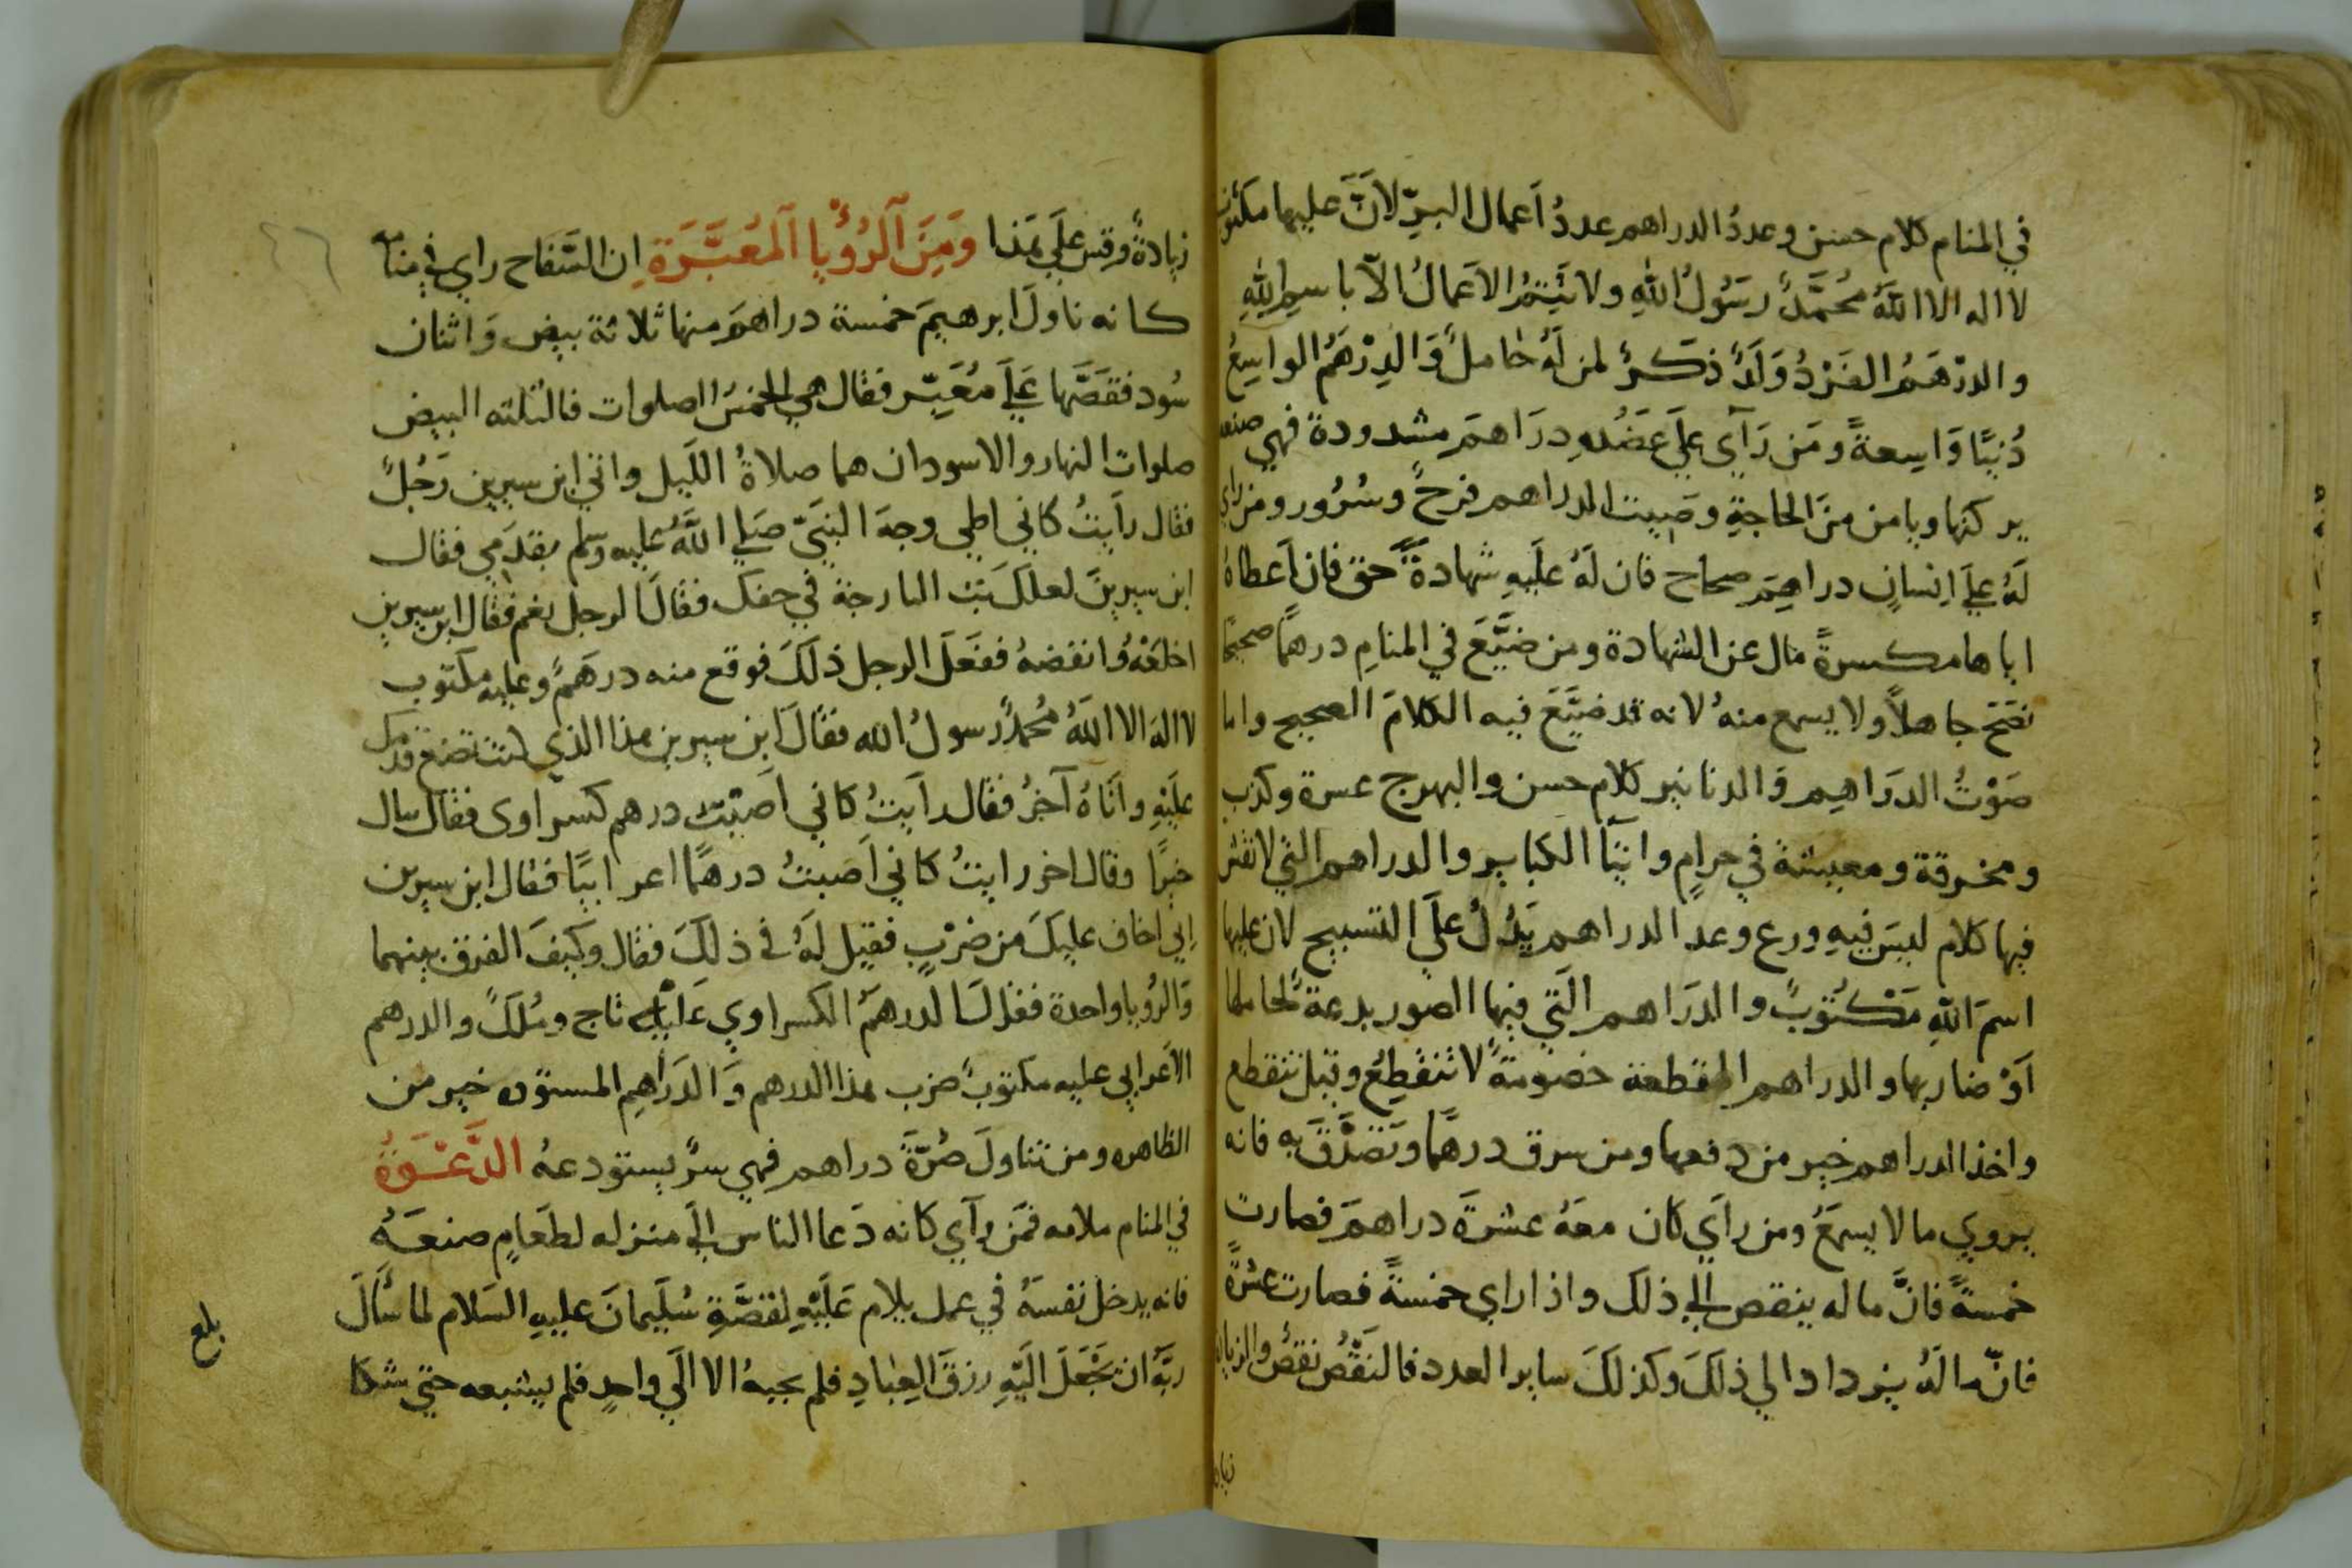 في المنام كلام حسن وعددُ الدراهم عددُ اَعمال البرّ لاَنَّ عليها مكتوب
لا اله الا اللهُ مُحَمَّدٌ رسَوُلُ اللهِ ولا يَتِمُّ الاَعمالُ الاّ باسمِ اللهِ
والدرْهَمُ الفَرْدُ وَلَدٌ ذكَرٌ لمن لَهُ حامل وَالدِرْهَمُ الواسِعُ
دُنيًا وَاسِعةً ومَن رَآي عَلَي عَضُدِهِ درَاهمَ مشدودة فهي صنعه
يركنها ويامن منَ الحاجةِ وصَبيت الدراهم فرحٌ وسُرُور ومن راي
لَهُ عَلَي اِنسانٍ دراهِمَ صحاح فان لَهُ علَيهِ شهادةَ حق فان اَعطاهُ
اياها مكسرةً مال عن الشهادة ومن ضَيَّعَ في المنامِ درهمًا صحيحًا
نصَح جاهلاً ولا يسمع منهُ لانه قد ضَيَّعَ فيه الكلامَ الصحيح واما
صَوْتُ الدرَاهِم وَالدنانير كلام حسن والبهرج عسرة وكذب
ومخرقة ومعيشة في حرامٍ واتيَا الكباير والدراهم التي لا نقش
فيها كلام ليسَ فيهِ ورع وعد الدراهم يَدُلُ علَي التسبيح لان عليها
اسمَ اللهِ مَكْتُوبٌ والدرَاهم الَتي فيها الصور بدعة لحاملها
اَوْ ضاربها والدراهم المقطعة خصُومةً لا تنقَطِعُ وقيل تنقطع
واخذ الدراهم خير من دفعها ومن سرق درهمًا وتصَدَّقَ به فانه
يروي ما لا يسمَعُ ومن راَي كان معَهُ عشرةَ دراهمَ فصارت
خمسةً فانَّ ماله ينقص الي ذلك واذا راي خمسةً فصارت عشرةً
فانّ مالَهُ يزداد الي ذلكَ وكذلكَ ساير العدد فالنَقْصُ نقصٌ والزيادة
زيادة
زيادةٌ وقِس علَي هَذا وَمِنَ الرُؤْيا المُعَبَّرَةِ ان السَّفاح راي في منامه
كانه ناولَ ابرهيمَ خمسة دراهمَ منها ثلاثة بيض وَاثنان
سُود فقصَّها عَلَي مُعَبِّر فقال هي الخمسُ الصلوات فالثلثه البيض
صلوات النهار والاسودان هما صلاةُ اللَيل واتي ابن سيرين رَجُلٌ
فقال رأَيتُ كاني اطي وجهَ النبَيّ صَلي اللَّهُ عليه وسلم بقدَمي فقال
ابن سيرينَ لعلكَ بت البارحة في خفك فقالَ الرجل نعم فقال ابن سيرين
اخلعْهُ وانفضهُ ففَعَلَ الرجل ذلكَ فوقع منه درهَمٌ وعليه مكتوب
لا الهَ الا اللهُ مُحمدٌ رسولُ الله فقالَ ابن سيرين هذا الذي كنت تضع قدمك
علَيَهِ واتَاهُ آخرُ فقال رأَيتُ كاني اَصَبت درهم كسراوى فقال ينال
خيرًا وقال اخر رايتُ كاني اَصبتُ درهمًا اعرابيًا فقال ابن سيرين
اِني اخاف عليكَ من ضرْبٍ فقيل لَهُ في ذلكَ فقال وكيفَ الفرق بينهما
وَالرُويا واحدة فقال الدرهمَ الكسراوي عَليْه تاج ومُلكٌ والدرهم
الاَعرابي عليه مكتوبٌ ضرب هذا الدرهم وَالدَراهِم المستوره خير من
الظاهره ومن تناولَ صُرّةَ دراهم فهي سرٌ يستودعهُ الدَّعْوَةُ
في المنام ملامه فمَن رآي كانه دَعا الناس الَي منزله لطعَامٍ صنعَهُ
فانه يدخل نفسَهُ في عمل يلام عَلَيْهِ لقصَّةِ سُلَيمانَ عليهِ السَلام لما سَأَلَ
ربَّهُ ان يَجْعَلَ اليَهِ رزقَ العِبادِ فلم يجبهُ الا الَي واحدٍ فلم يشبعه حتي شكا
بلع
٤٦